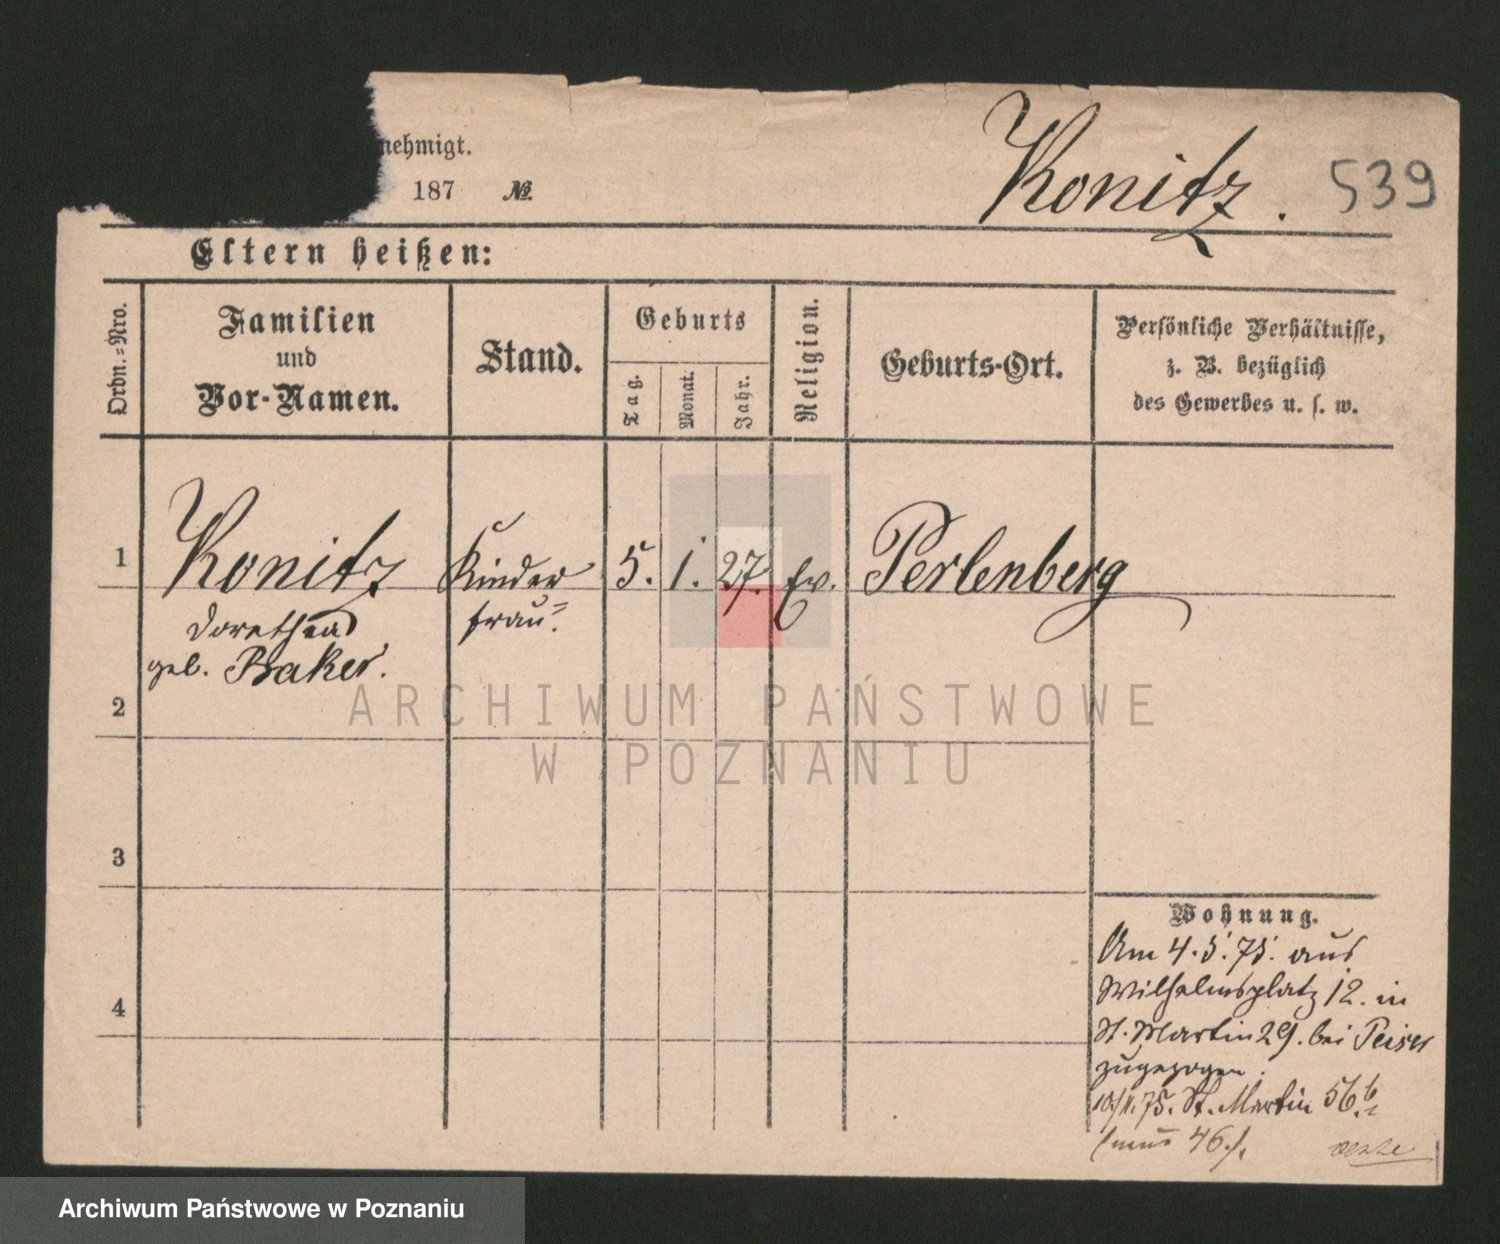 nehmigt.
187 №
Konitz. 539
Eltern heißen:
Ordn.-Nro.
Familien
und
Vor-Namen.
Stand.
Geburts
Tag.
Monat.
Jahr.
Religion.
Geburts-Ort.
Persönliche Verhältnisse,
z. B. bezüglich
des Gewerbes u. s. w.
1 Konitz Kinder 5. 1. 27. Ev. Perlenberg
Dorothea frau.
geb. Baker.
2
ARCHIWUM PAŃSTWOWE
W POZNANIU
3
4
Wohnung.
Am 4. 5. 75. aus
Wilhelmsplatz 12. in
St. Martin 29. bei Peiser
zugezogen.
75. St. Martin 56
46
Archiwum Państwowe w Poznaniu